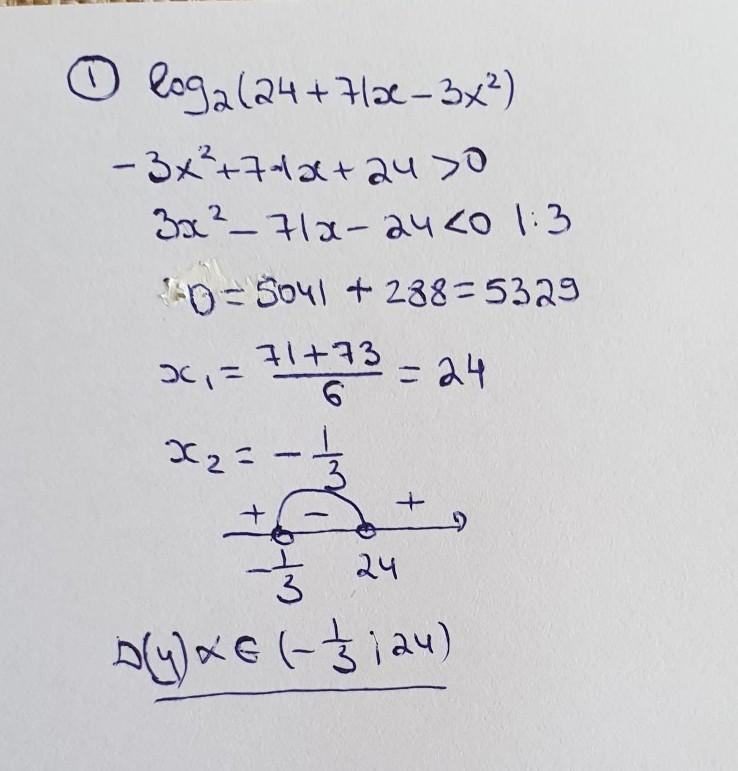 ① log₂(24+71x-3x²)
-3x²+71x+24>0
3x²-71x-24<0 |:3
D=5041+288=5329
x₁=\frac{71+73}{6}=24
x₂=-\frac{1}{3}
+ - +
-\frac{1}{3} 24
D(y) x∈(-\frac{1}{3};24)